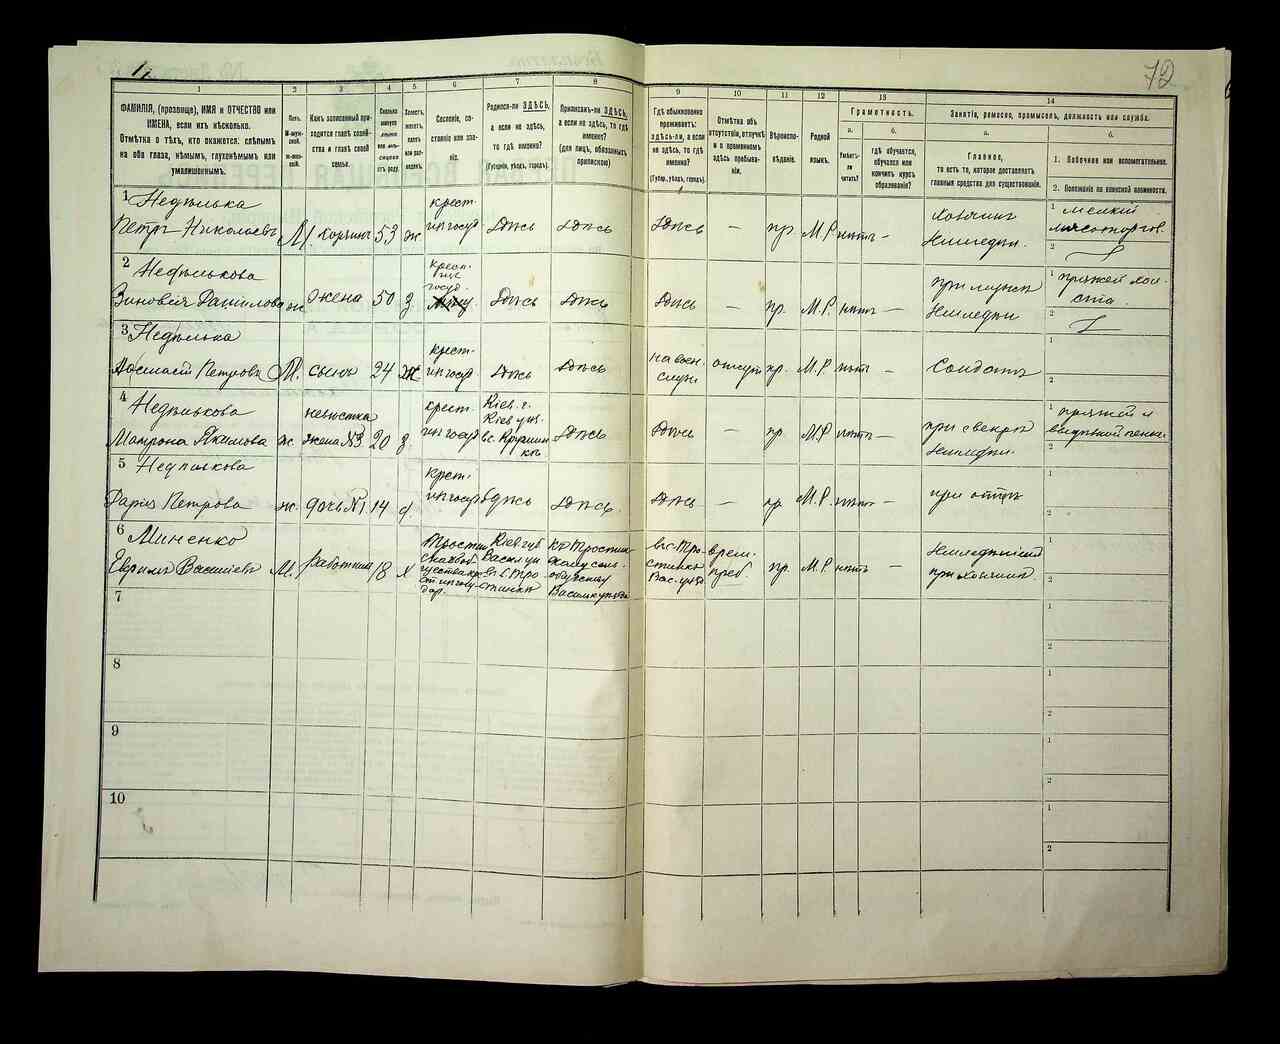 72
1
2
3
4
5
6
7
8
9
10
11
12
13
14
ФАМИЛІЯ, (прозвище), ИМЯ и ОТЧЕСТВО или
ИМЕНА, если ихъ нѣсколько.
Отмѣтка о тѣхъ, кто окажется: слѣпымъ
на оба глаза, нѣмымъ, глухонѣмымъ или
умалишеннымъ.
Полъ.
М-муж-
ской.
Ж-жен-
скій.
Какъ записанный при-
ходится главѣ хозяй-
ства и главѣ своей
семьи.
Сколько
минуло
лѣтъ
или мѣ-
сяцевъ
отъ роду.
Холостъ,
женатъ,
вдовъ
или раз-
веденъ.
Сословіе, со-
стояніе или зва-
ніе.
Родился-ли ЗДѢСЬ,
а если не здѣсь,
то гдѣ именно?
(Губернія, уѣздъ, городъ).
Приписанъ-ли ЗДѢСЬ,
а если не здѣсь, то гдѣ
именно?
(для лицъ, обязанныхъ
припискою)
Гдѣ обыкновенно
проживаетъ:
здѣсь-ли, а если
не здѣсь, то гдѣ
именно?
(Губер., уѣздъ, городъ).
Отмѣтка объ
отсутствіи, отлучкѣ
и о временномъ
здѣсь пребыва-
ніи.
Вѣроиспо-
вѣданіе.
Родной
языкъ.
Грамотность.
а.
б.
Умѣетъ-
ли
читать?
гдѣ обучается,
обучался или
кончилъ курсъ
образованія?
Занятіе, ремесло, промыселъ, должность или служба.
а.
б.
Главное,
то есть то, которое доставляетъ
главныя средства для существованія.
1. Побочное или вспомогательное.
2. Положеніе по воинской повинности.
1 Недѣлька
Петръ Николаевъ М. хозяинъ 53 ж
крест.
из госуд здѣсь здѣсь здѣсь — пр. М.Р. нѣтъ —
Хозяинъ
Землед.
1 мелкій
мясоторгов.
2
2 Недѣлькова
Зиновія Данилова ж. жена 50 з.
крест.
из
госуд. здѣсь здѣсь здѣсь — пр. М.Р. нѣтъ —
при мужѣ
Землед.
1 пряжей хол-
ста.
2
3 Недѣлька
Петровъ М. сынъ 24
крест.
из госуд. здѣсь здѣсь
на воен.
служ. отсут пр. М.Р нѣтъ —
Солдатъ
1
2
4 Недѣлькова
Матрона Якимова ж.
невѣстка
жена №3 20 з.
крест.
из госуд
Кіев. г.
Кіев. уѣз.
здѣсь здѣсь — пр. М.Р нѣтъ —
при свекрѣ
Землед.
1 пряжей и
2
5 Недѣлькова
Дарія Петрова ж. дочь №1 14 д.
крест.
из госуд здѣсь здѣсь здѣсь — пр М.Р. нѣтъ —
при отцѣ
1
2
6 Миненко
Евфимъ Васильевъ М. работникъ 18 х
Кіев губ
Васил уѣ
въ с. Тро-
стинкѣ
въ с. Тро-
стинкѣ
Вас. уѣзд
врем.
преб. пр. М.Р. нѣтъ —
при хозяинѣ
1
2
7
1
2
8
1
2
9
1
2
10
1
2